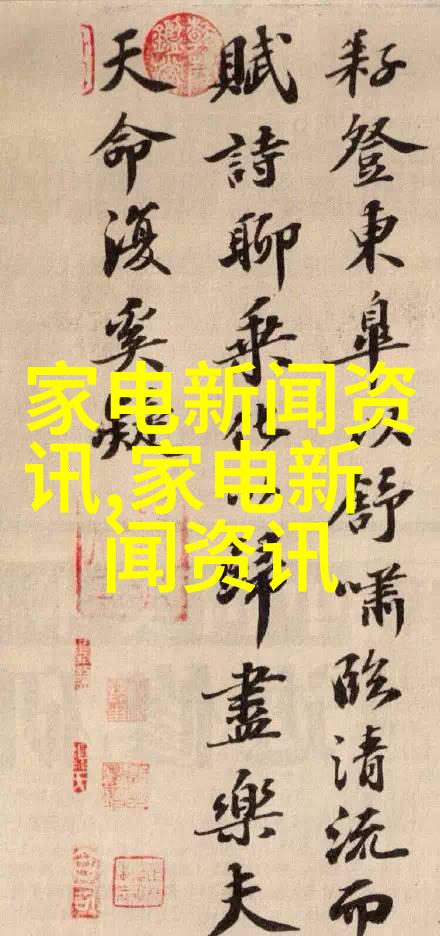 耔登東皋以舒嘯臨清流而
賦詩聊乘化以歸盡樂夫
天命復奚疑
家电新闻资
讯,家电新
闻资讯